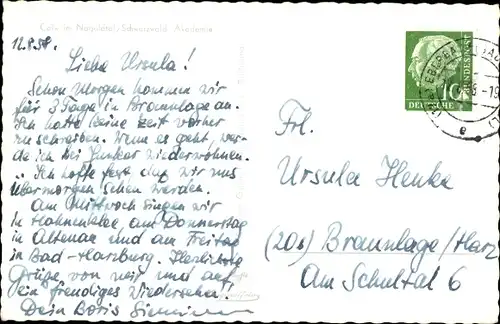 Calw im Nagoldtal, Schwarzwald Akademie
12.8.58.
Liebe Ursula!
Schon morgen kommen wir
für 3 Tage in Braunlage an.
Ich hatte keine Zeit vorher
zu schreiben. Wenn es geht, wer-
de ich bei Junker wieder wohnen.
Ich hoffe, dass wir uns
übermorgen sehen werden.
Am Mittwoch singen wir
in Hahnenklee, am Donnerstag
in Altenau und am Freitag
in Bad-Harzburg. Herzliche
Grüße von mir und auf
ein freudiges Wiedersehen!
Dein Boris
10
DEUTSCHE
BUNDESPOST
Frl.
Ursula Henke
(20b) Braunlage/Harz
Am Schultal 6